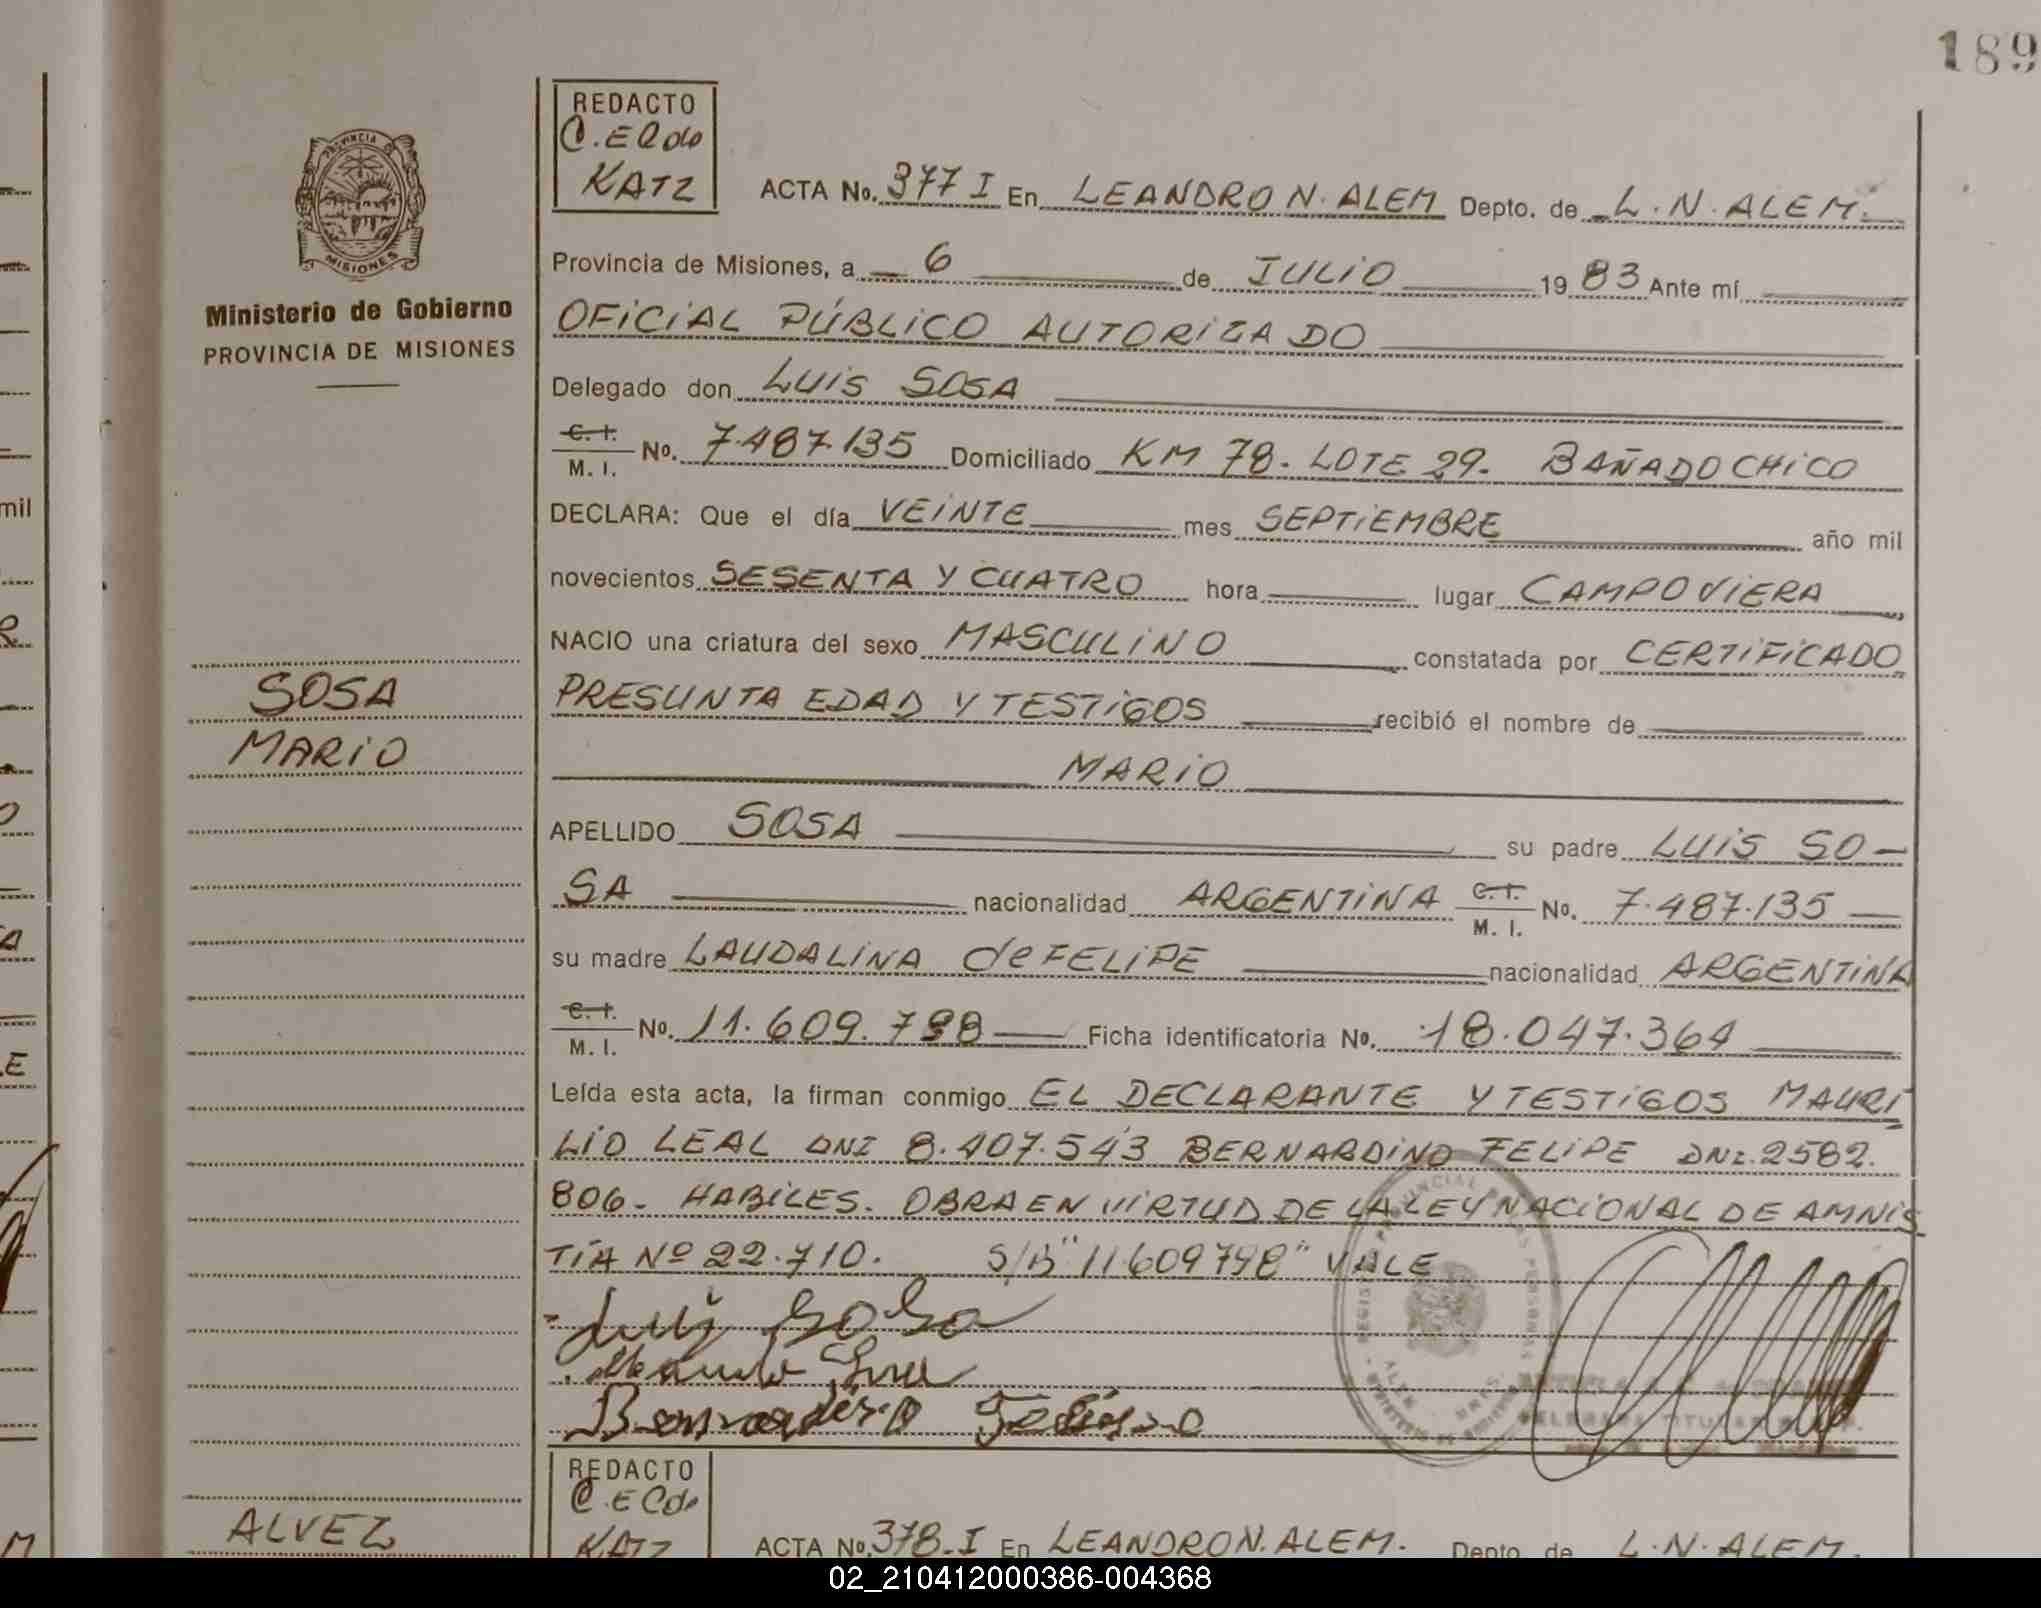 189
REDACTO
KATZ
ACTA No. 377 I En LEANDRO N. ALEM Depto. de L. N. ALEM.
PROVINCIA DE
MISIONES
Ministerio de Gobierno
PROVINCIA DE MISIONES
Provincia de Misiones, a 6 de JULIO 19 83 Ante mí
OFICIAL PÚBLICO AUTORIZADO
Delegado don LUIS SOSA
C. I. M. I. No. 7.487.135 Domiciliado KM 78. LOTE 29. BAÑADO CHICO
DECLARA: Que el día VEINTE mes SEPTIEMBRE año mil
novecientos SESENTA Y CUATRO hora lugar CAMPO VIERA
NACIO una criatura del sexo MASCULINO constatada por CERTIFICADO
PRESUNTA EDAD Y TESTIGOS recibió el nombre de
MARIO
SOSA
MARIO
APELLIDO SOSA su padre LUIS SO-
SA nacionalidad ARGENTINA C. I. M. I. No. 7.487.135
su madre LAUDALINA de FELIPE nacionalidad ARGENTINA
C. I. M. I. No. 11.609.798 Ficha identificatoria No. 18.047.364
Leída esta acta, la firman conmigo EL DECLARANTE Y TESTIGOS MAURI
LIO LEAL DNI 8.407.543 BERNARDINO FELIPE DNI. 2582.
806. HABILES. OBRA EN VIRTUD DE LA LEY NACIONAL DE AMNIS
TÍA Nº 22.710. S/B "11609798" VALE
Luis Sosa
REDACTO
KATZ
ALVEZ
ACTA No. 378-I En LEANDRO N. ALEM. Depto. de L. N. ALEM.
mil
02_210412000386-004368